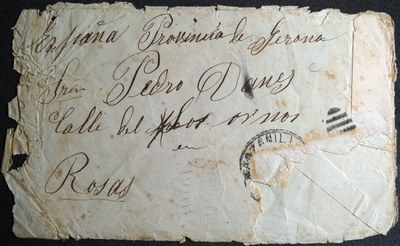 España Provincia de Gerona
Sr Pedro Danés
Calle del los ornos
en
Rosas
MANZANILL